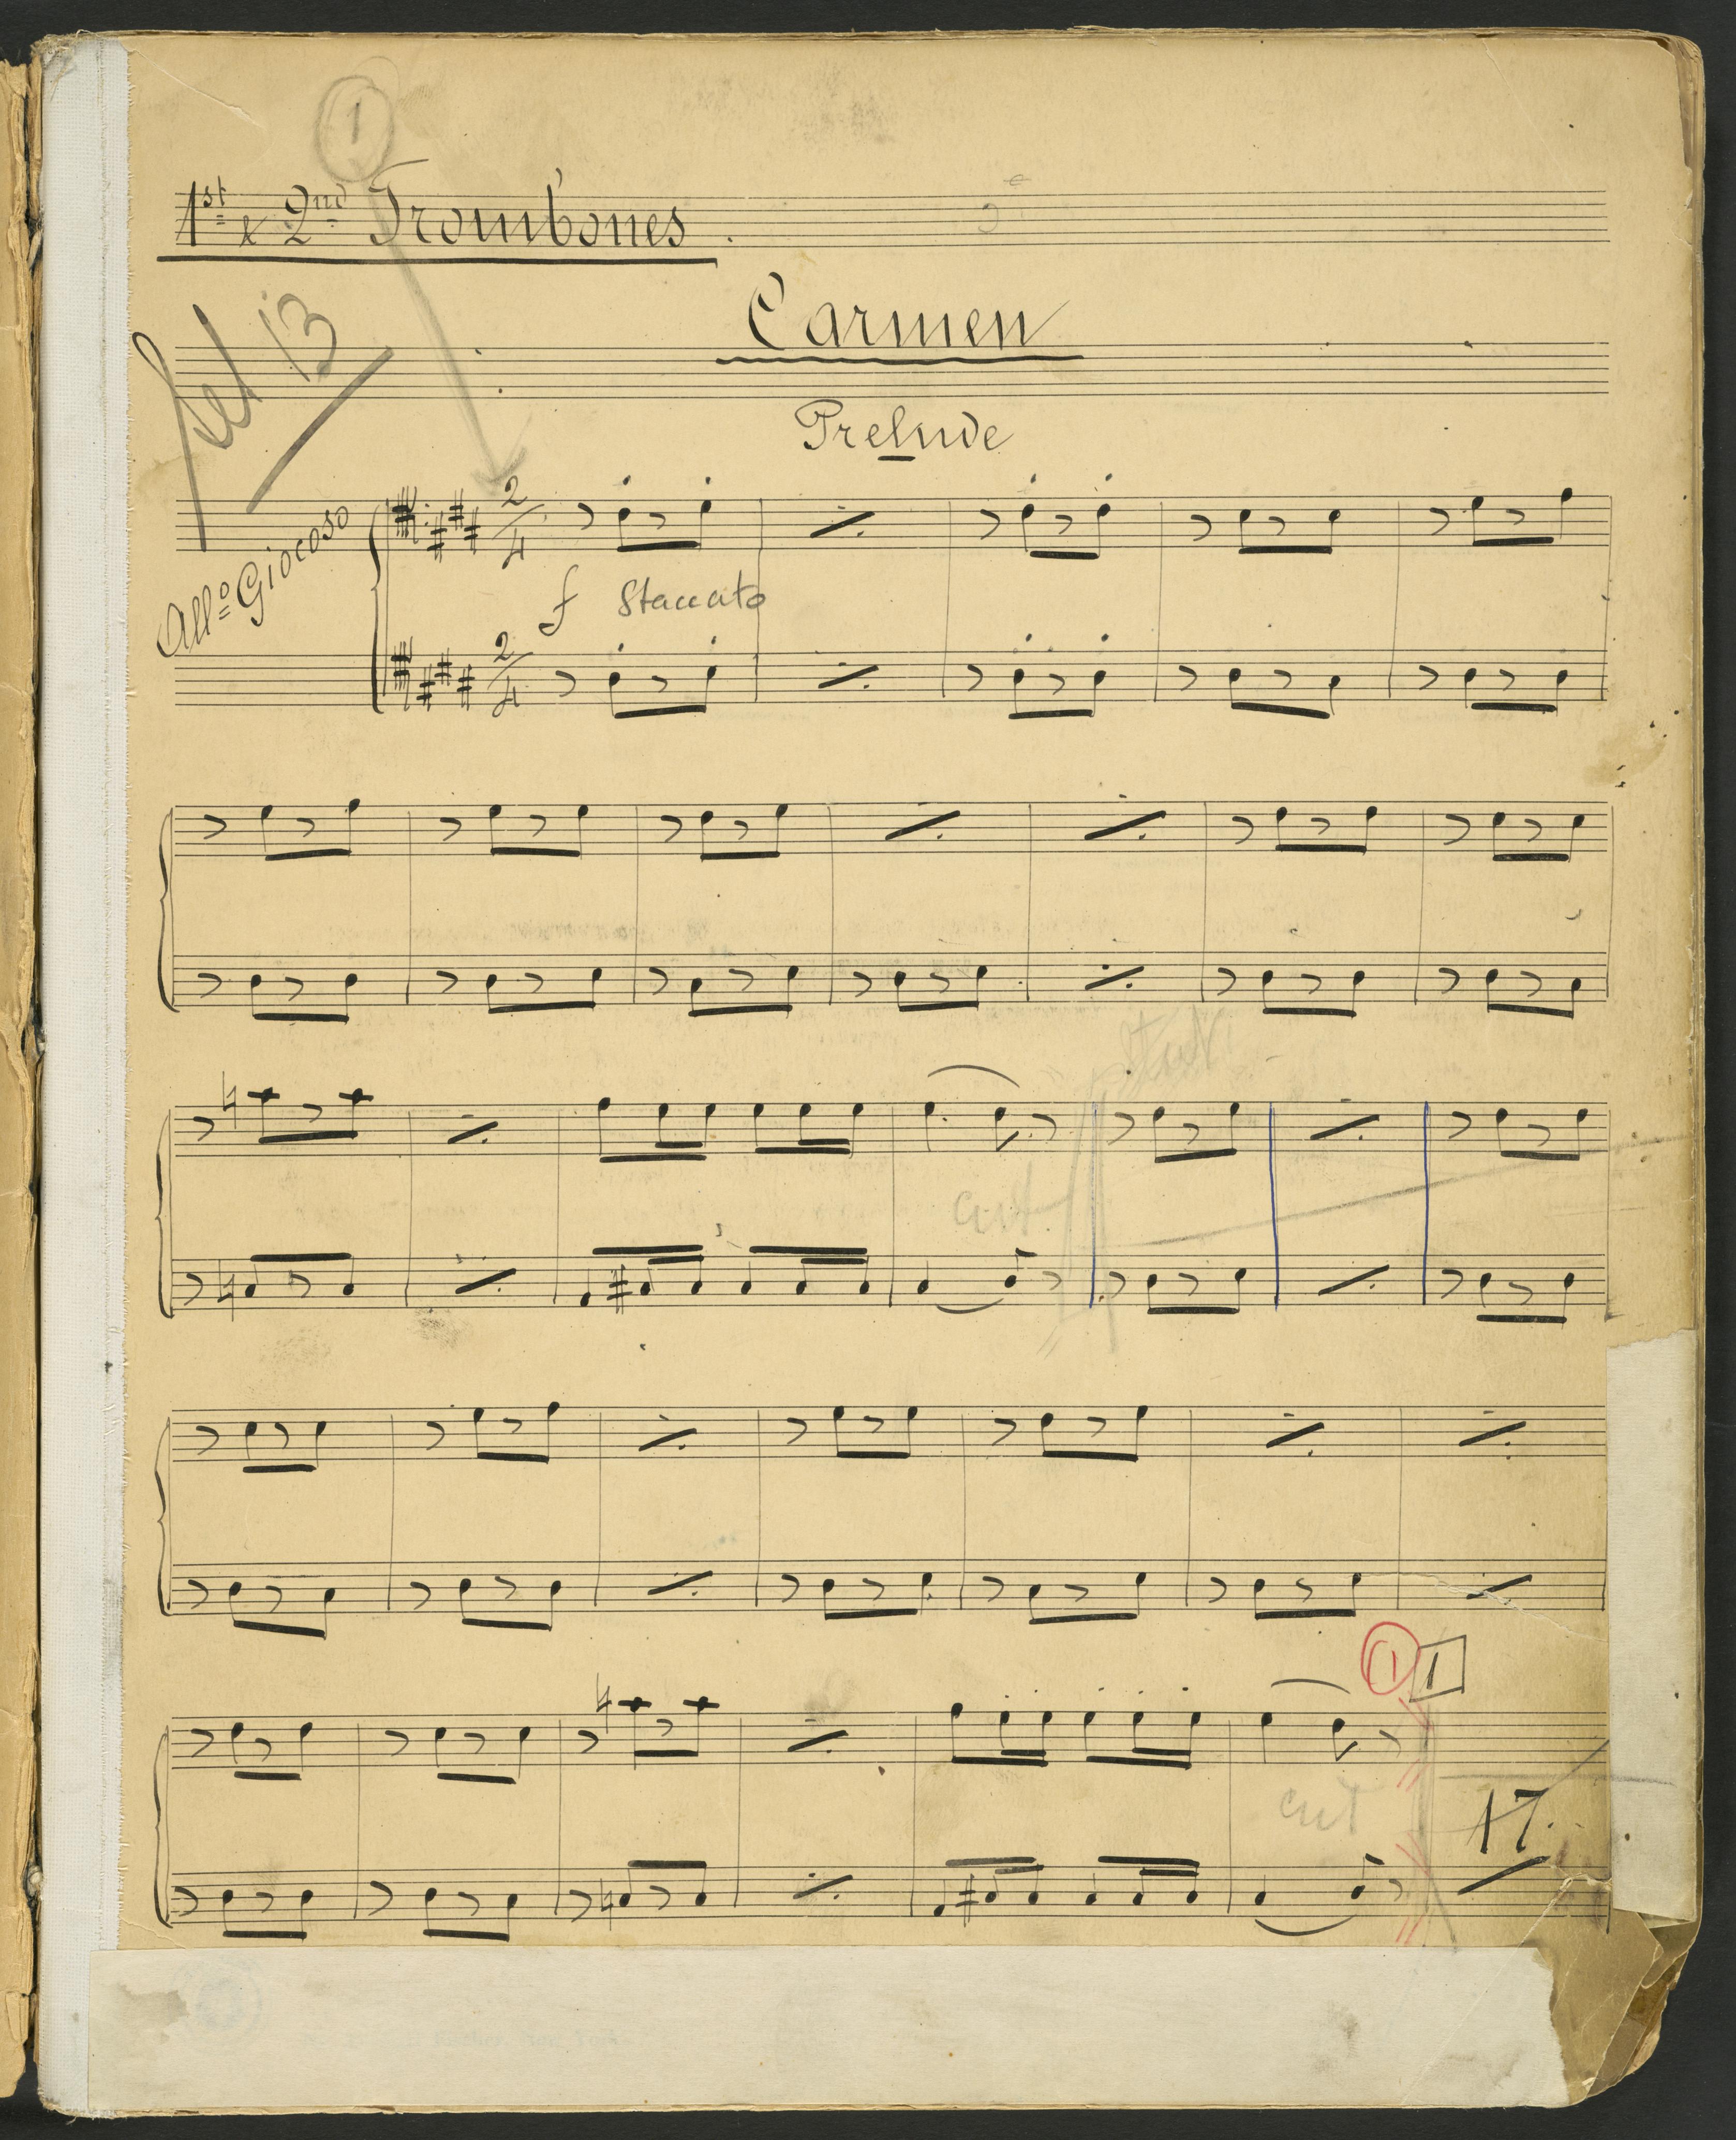 1
1st & 2nd Trombones.
Carmen
Prelude
All° Giocoso
2/4
f Staccato
2/4
cut
1 1
cut
17.